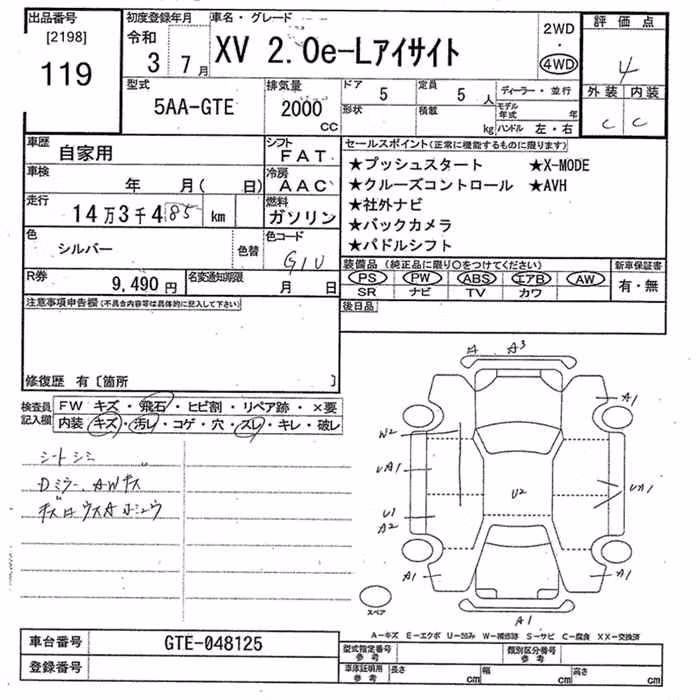 出品番号
[2198]
119
初度登録年月
令和
3 7月
車名・グレード
XV 2.0e-Lアイサイト
2WD
・
4WD
評価点
4
外装 内装
C C
型式
5AA-GTE
排気量
2000
CC
ドア
5
定員
5人
形状
積載
kg
ディーラー・並行
モデル年式 年
ハンドル 左・右
車歴
自家用
シフト
FAT
車検
年 月( 日)
冷房
AAC
走行
14万3千485 km
燃料
ガソリン
色
シルバー
色替
色コード
G1U
R券
9,490円
名変通知期限
月 日
セールスポイント(正常に機能するものに限ります)
★プッシュスタート ★X-MODE
★クルーズコントロール ★AVH
★社外ナビ
★バックカメラ
★パドルシフト
装備品(純正品に限り○をつけてください)
PS PW ABS エアB AW
SR ナビ TV カワ
新車保証書
有・無
後日品
注意事項申告欄(不具合内容等は具体的に記入して下さい)
修復歴 有〔箇所 〕
検査員記入欄
FW キズ・飛石・ヒビ割・リペア跡・×要
内装・キズ・汚レ・コゲ・穴・スレ・キレ・破レ
シートシミ
Dミラー、AWキズ
A A3
A1
W2
UA1
U1
A2
U2
UA1
A1
A1
A1
スペア
A-キズ E-エクボ U-凹み W-補修跡 S-サビ C-腐食 XX-交換済
車台番号
GTE-048125
登録番号
型式指定番号
参考
類別区分番号
参考
車庫証明用
参考
長さ cm
幅 cm
高さ cm